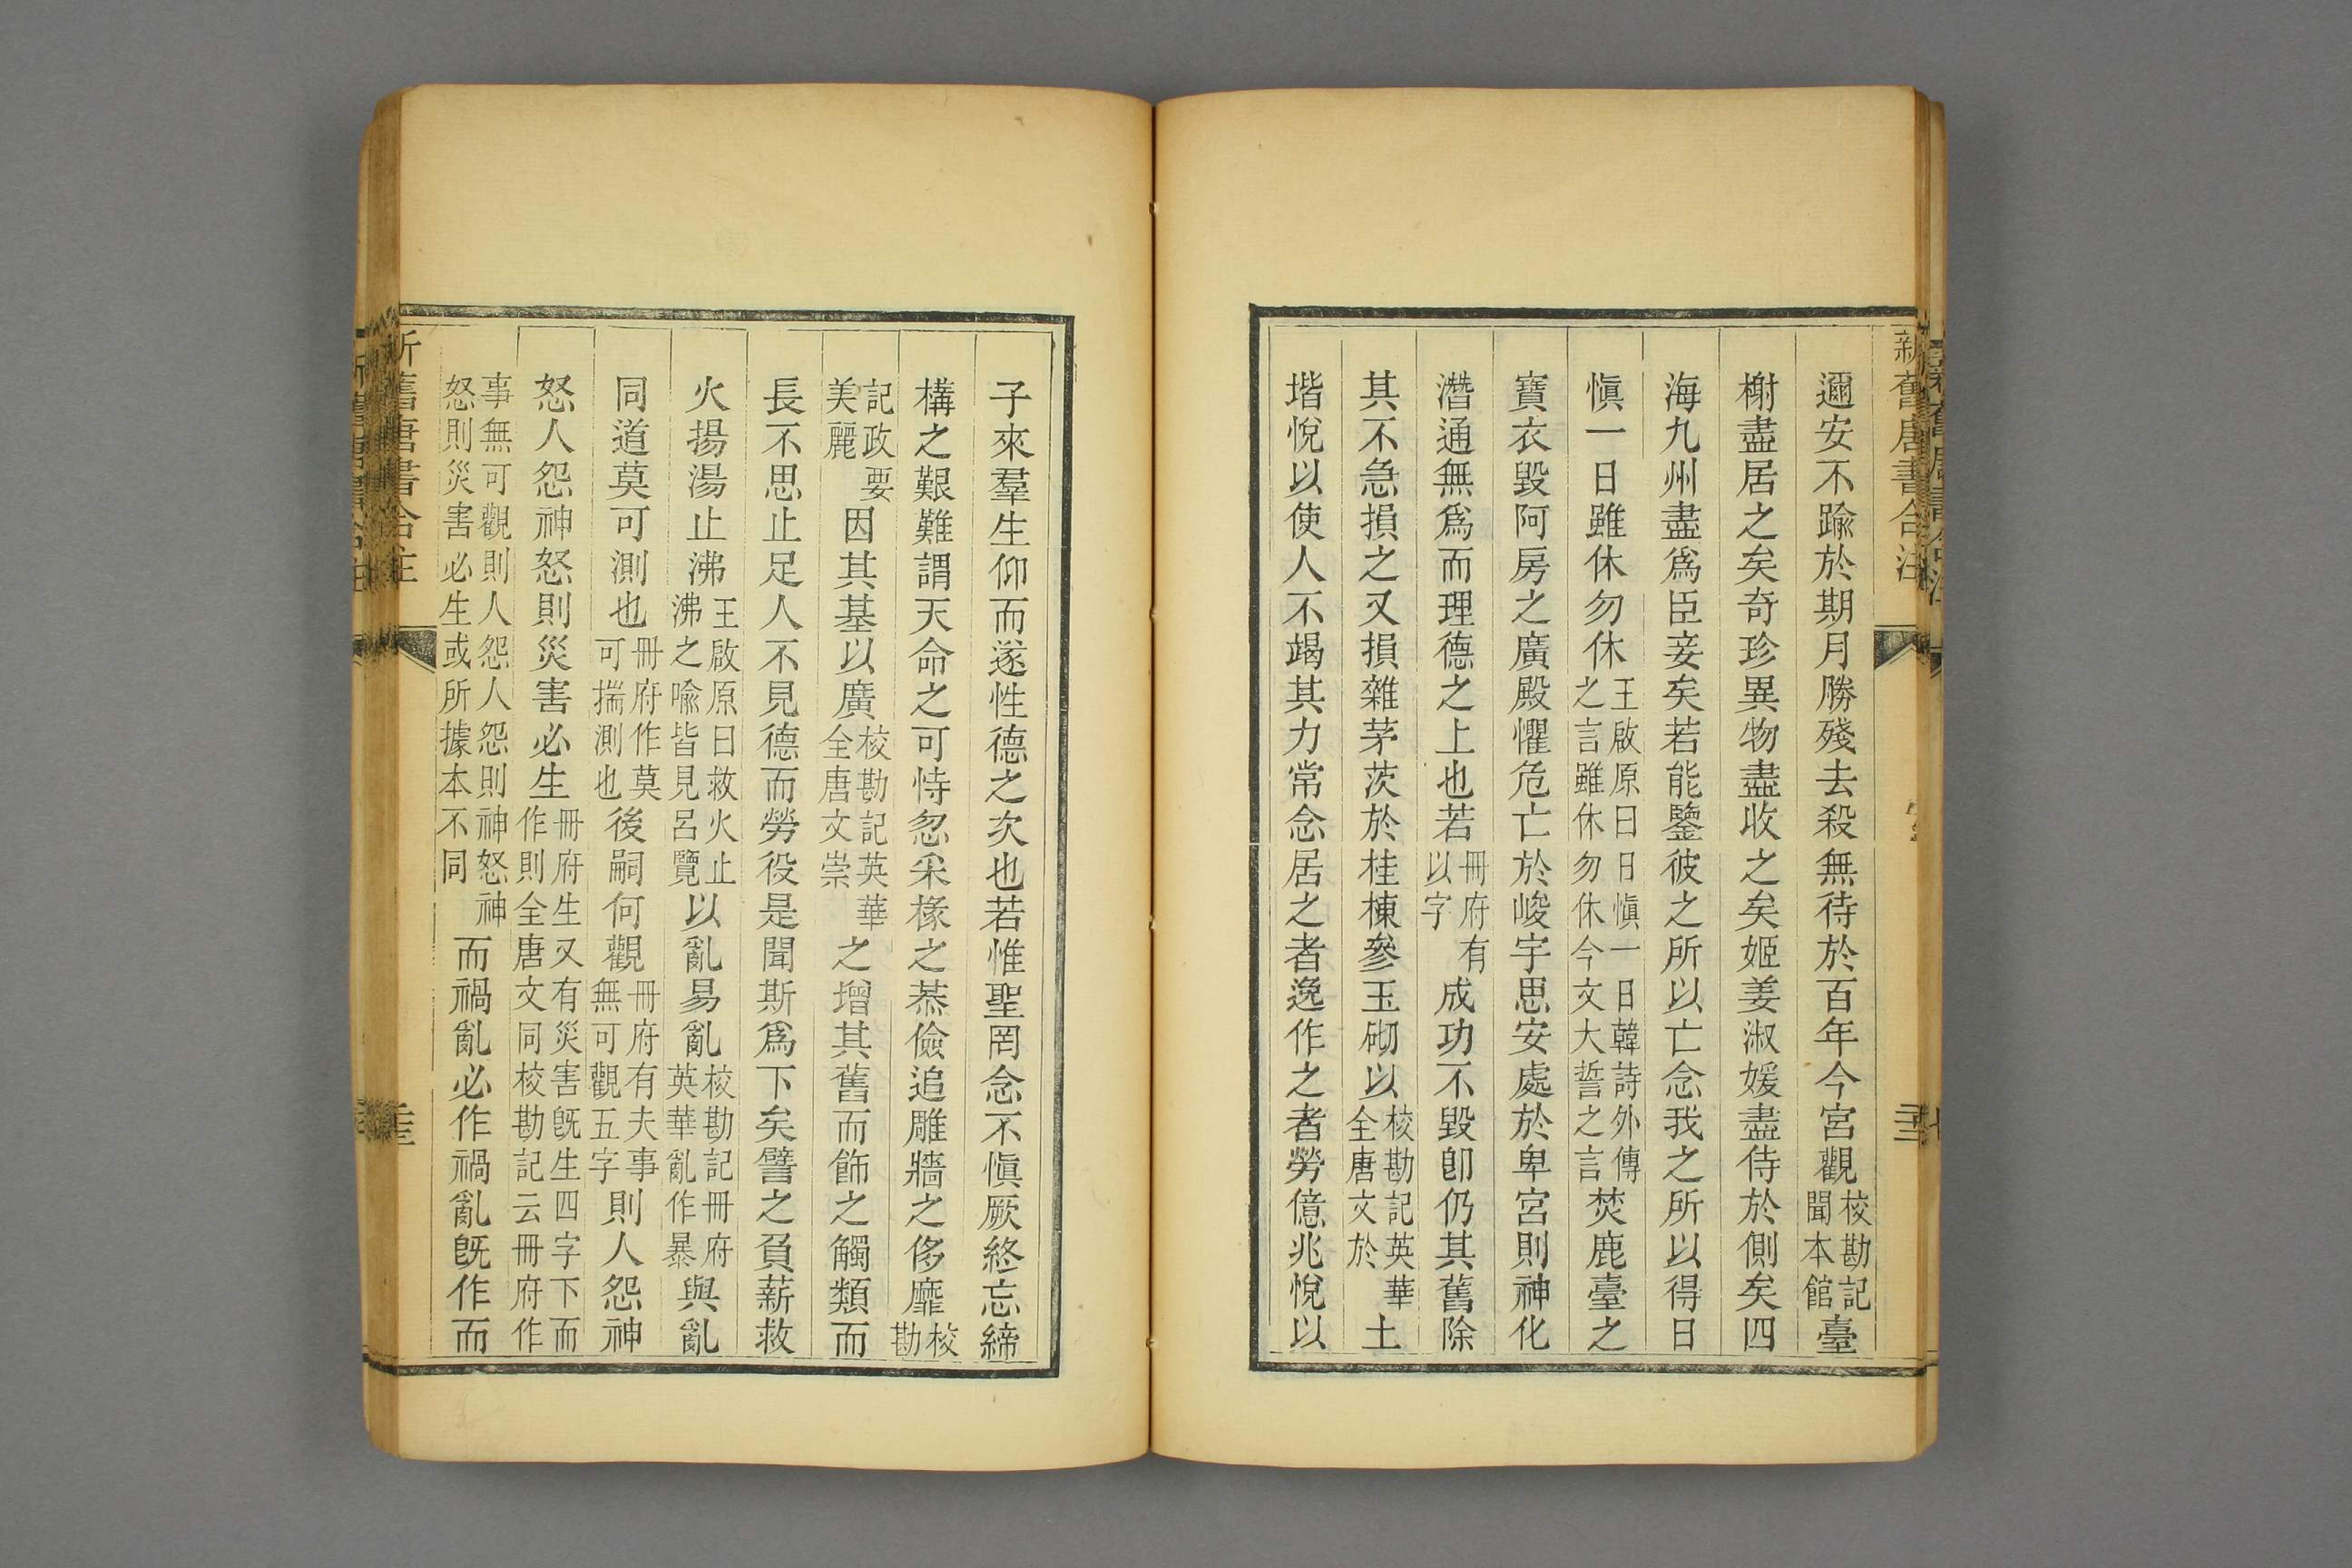 新舊唐書合注
邇安不踰於期月勝殘去殺無待於百年今宮觀校勘記聞本館臺
榭盡居之矣奇珍異物盡收之矣姬姜淑媛盡侍於側矣四
海九州盡爲臣妾矣若能鑒彼之所以亡念我之所以得日
愼一日雖休勿休王啟原曰日愼一日韓詩外傳之言雖休勿休今文大誓之言焚鹿臺之
寶衣毀阿房之廣殿懼危亡於峻宇思安處於卑宮則神化
潛通無爲而理德之上也若冊府有以字成功不毀卽仍其舊除
其不急損之又損雜茅茨於桂棟參玉砌以校勘記英華全唐文於土
堦悅以使人不竭其力常念居之者逸作之者勞億兆悅以
子來羣生仰而遂性德之次也若惟聖罔念不愼厥終忘締
構之艱難謂天命之可恃忽采椽之恭儉追雕牆之侈靡校勘
記政要美麗因其基以廣校勘記英華全唐文崇之增其舊而飾之觸類而
長不思止足人不見德而勞役是聞斯爲下矣譬之負薪救
火揚湯止沸王啟原曰救火止沸之喻皆見呂覽以亂易亂校勘記冊府英華亂作暴與亂
同道莫可測也冊府作莫可揣測也後嗣何觀冊府有夫事無可觀五字則人怨神
怒人怨神怒則災害必生冊府生又有災害旣生四字下而作則全唐文同校勘記云冊府作
事無可觀則人怨人怨則神怒神怒則災害必生或所據本不同而禍亂必作禍亂旣作而
新舊唐書合注